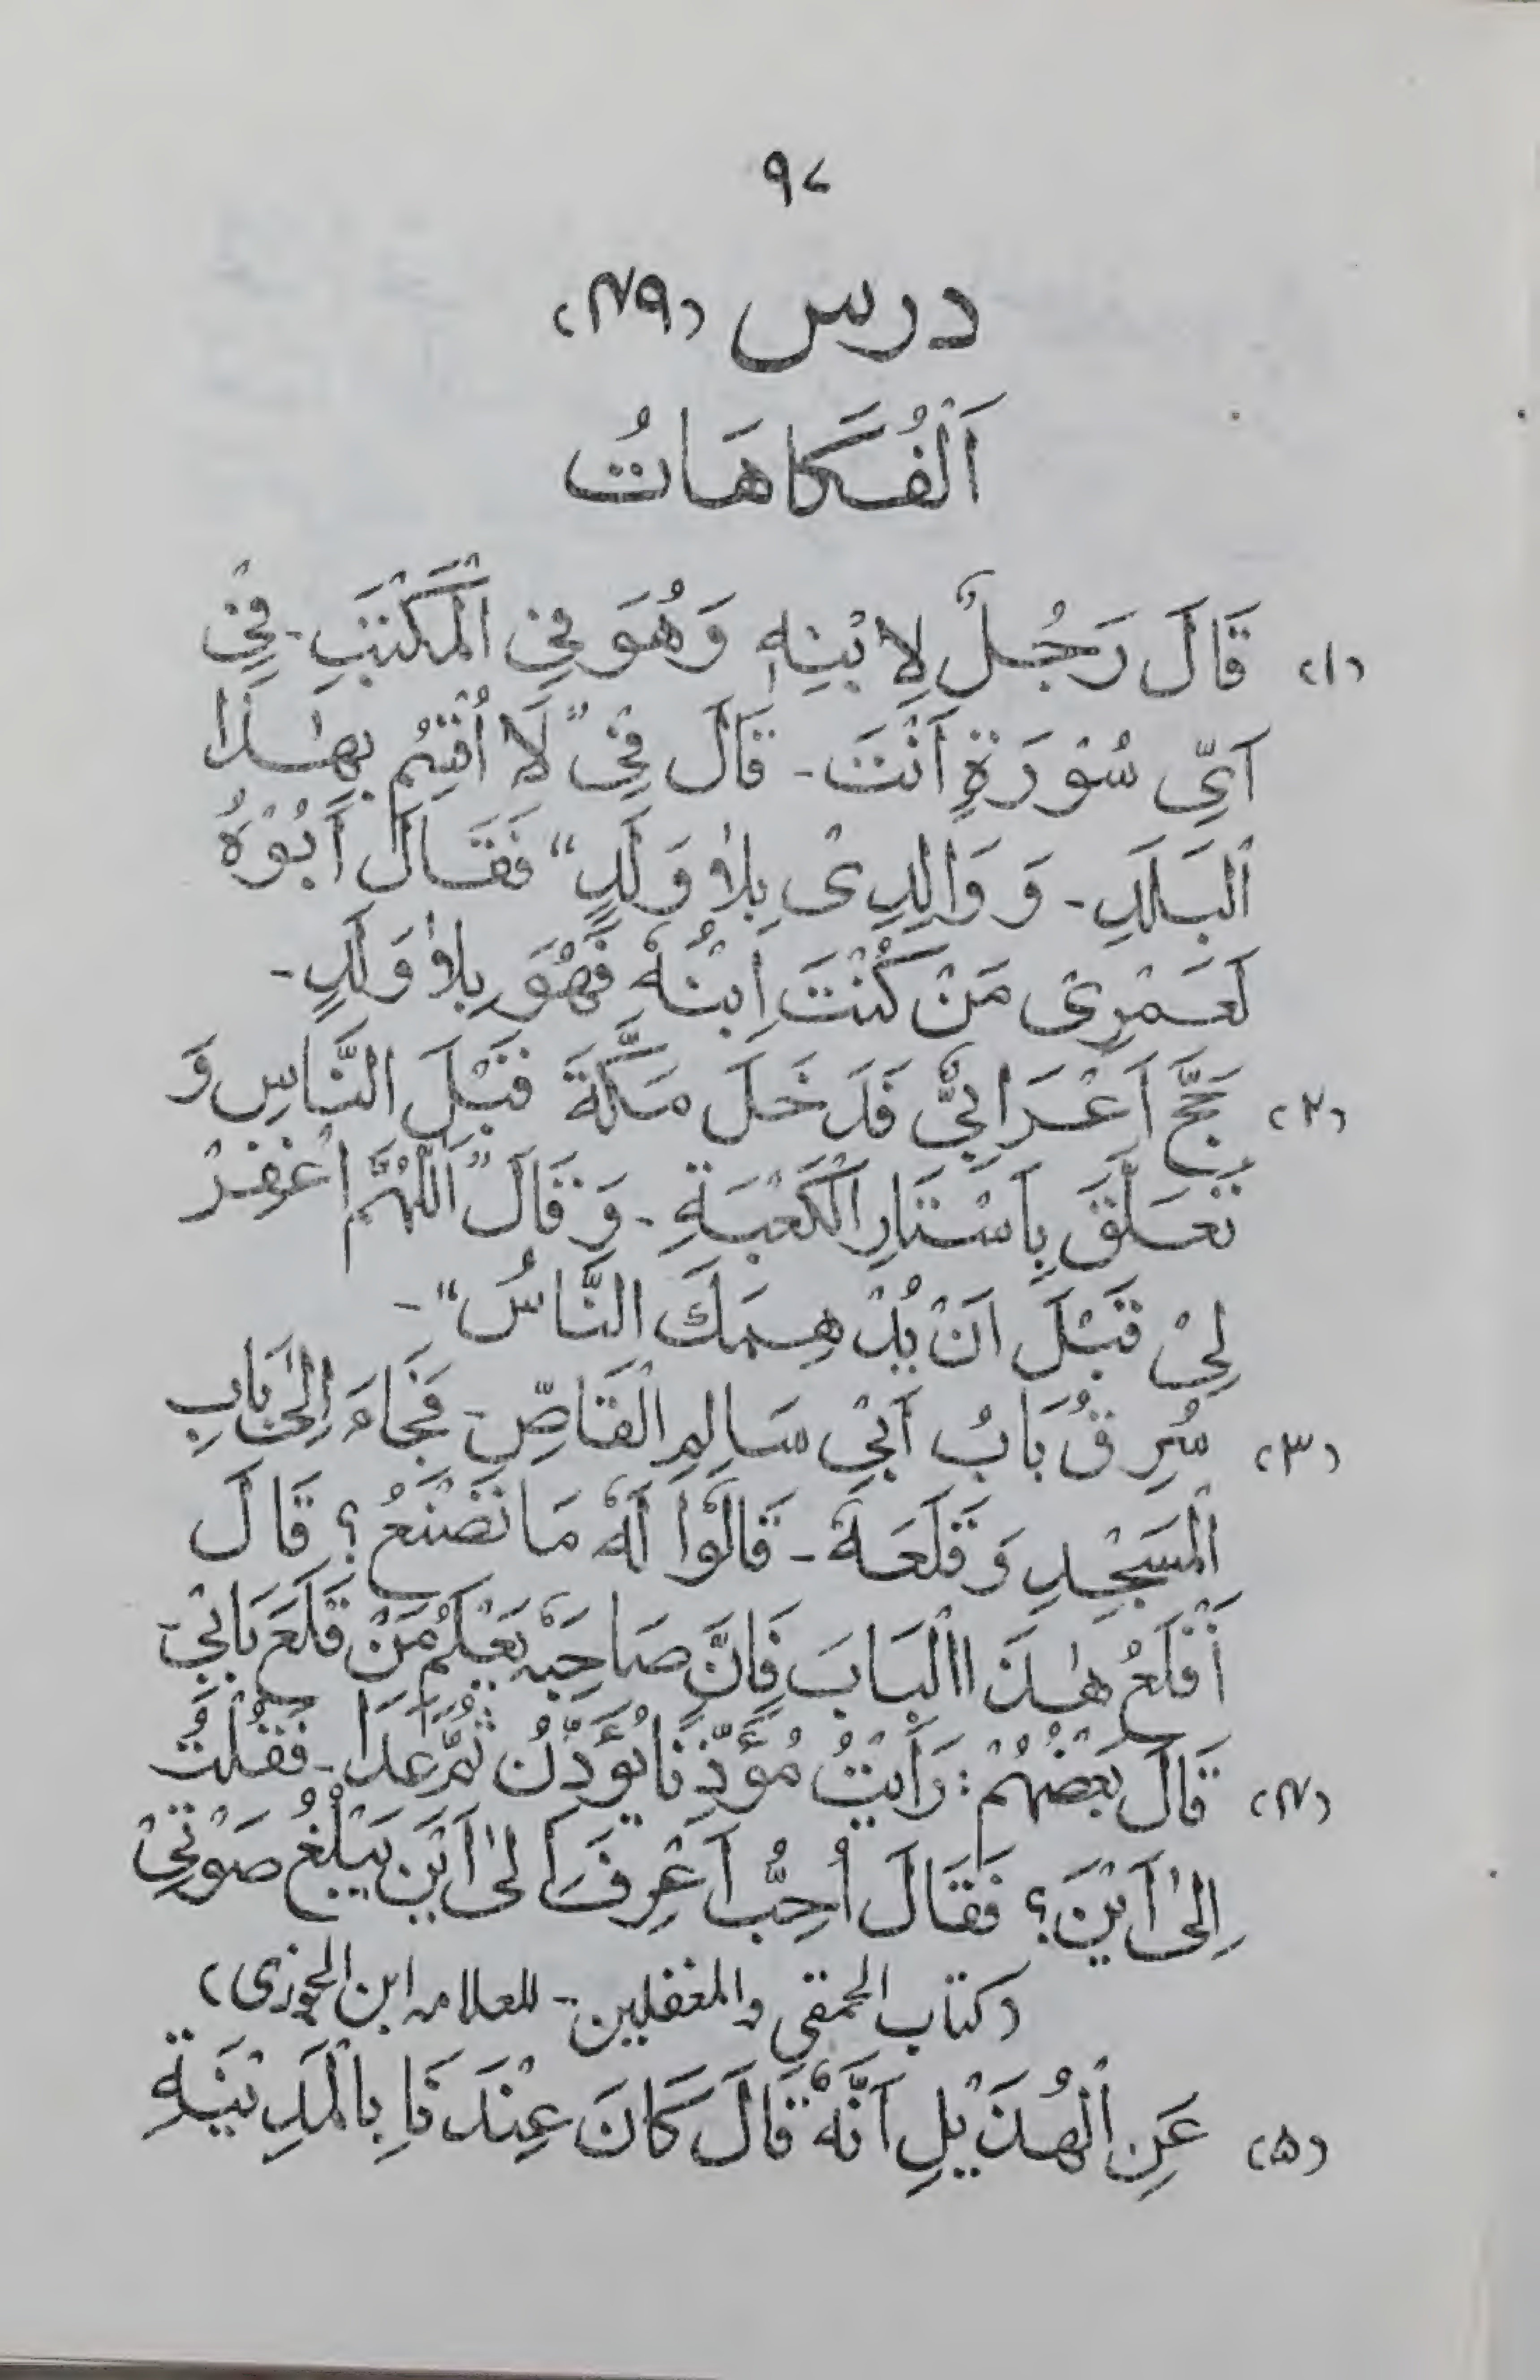 ۹۷
درس (۴۹)
اَلْفُكَاهَاتُ
(۱) قَالَ رَجُلٌ لِابْنِهٖ وَهُوَ فِي الْمَكْتَبِ - فِيْ
اَيِّ سُوْرَةٍ اَنْتَ - قَالَ فِيْ "لَا اُقْسِمُ بِهٰذَا
الْبَلَدِ - وَ وَالِدِىْ بِلَا وَلَدٍ" فَقَالَ اَبُوْهُ
لَعَمْرِىْ مَنْ كُنْتَ اِبْنُهٗ فَهُوَ بِلَا وَلَدٍ -
(۲) حَجَّ اَعْرَابِيٌّ فَدَخَلَ مَكَّةَ قَبْلَ النَّاسِ وَ
تَعَلَّقَ بِاَسْتَارِ الْكَعْبَةِ - وَ قَالَ "اَللّٰهُمَّ اغْفِرْ
لِيْ قَبْلَ اَنْ يُدْهِمَكَ النَّاسُ" -
(۳) سُرِقَ بَابُ اَبِيْ سَالِمِ الْقَاصِّ - فَجَاءَ اِلٰى بَابِ
الْمَسْجِدِ وَ قَلَعَهٗ - قَالُوْا لَهٗ مَا تَصْنَعُ؟ قَالَ
اَقْلَعُ هٰذَا الْبَابَ فَاِنَّ صَاحِبَهٗ يَعْلَمُ مَنْ قَلَعَ بَابِيْ -
(۴) قَالَ بَعْضُهُمْ: رَأَيْتُ مُؤَذِّنًا يُؤَذِّنُ ثُمَّ عَدَا - فَقُلْتُ
اِلٰى اَيْنَ؟ فَقَالَ اُحِبُّ اَعْرِفُ اِلٰى اَيْنَ يَبْلُغُ صَوْتِيْ
(كتاب الحمقى والمغفلين - للعلامہ ابن الجوزى)
(۵) عَنِ الْهُذَيْلِ اَنَّهٗ قَالَ كَانَ عِنْدَنَا بِالْمَدِيْنَةِ